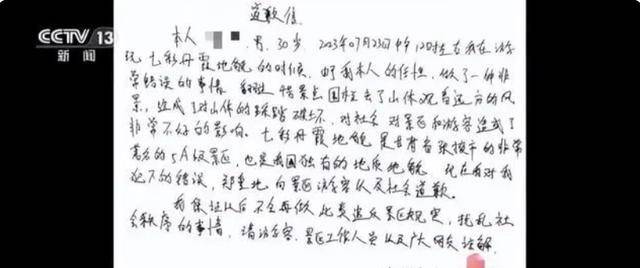 CCTV 13
新闻
道歉信
本人 男,30岁 2023年07月23日中午12时左右我在游
玩七彩丹霞地貌的时候,由于我本人的任性,做了一件非
常错误的事情 翻越 景点围栏去了山体观看远方的风
景,造成了对山体的踩踏破坏,对社会 对景区和游客造成了
非常不好的影响。七彩丹霞地貌是甘肃省张掖市的非常
著名的5A级景区,也是我国独有的地质地貌 现在对我
犯下的错误,郑重地向景区游客以及社会道歉。
我保证以后不会再做此类违反景区规定,扰乱社
会秩序的事情,请游客、景区工作人员以及广大网友谅解。